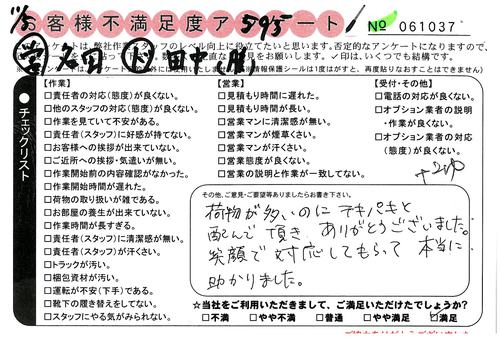 11/5
お客様不満足度アンケート
595
№ 061037
本アンケートは、弊社作業スタッフのレベル向上に役立てたいと思います。否定的なアンケートになりますので、
✓印は、いくつでも結構です。
久田 田中
チェックリスト
【作業】
□責任者の対応(態度)が良くない。
□他のスタッフの対応(態度)が良くない。
□作業を見ていて不安がある。
□責任者(スタッフ)に好感が持てない。
□お客様への挨拶が出来ていない。
□ご近所への挨拶・気遣いが無い。
□作業開始前の内容確認がなかった。
□作業開始時間が遅れた。
□荷物の取り扱いが雑である。
□お部屋の養生が出来ていない。
□作業時間が長すぎる。
□責任者(スタッフ)に清潔感が無い。
□責任者(スタッフ)が汗くさい。
□トラックが汚い。
□梱包資材が汚い。
□運転が不安(下手)である。
□靴下の履き替えをしてない。
□スタッフにやる気がみられない。
【営業】
□見積もり時間に遅れた。
□見積もり時間が長い。
□営業マンに清潔感が無い。
□営業マンが煙草くさい。
□営業マンが汗くさい。
□営業態度が良くない。
□営業の説明と作業が一致してない。
【受付・その他】
□電話の対応が良くない。
□オプション業者の説明
・作業が良くない。
□オプション業者の対応
(態度)が良くない。
その他、ご意見・ご要望等ありましたらお書き下さい。
荷物が多いのに テキパキと
運んで頂き ありがとうございました。
笑顔で対応してもらって 本当に
助かりました。
☆当社をご利用いただきまして、ご満足いただけたでしょうか?
□不満 □やや不満 □普通 □やや満足 ☑満足